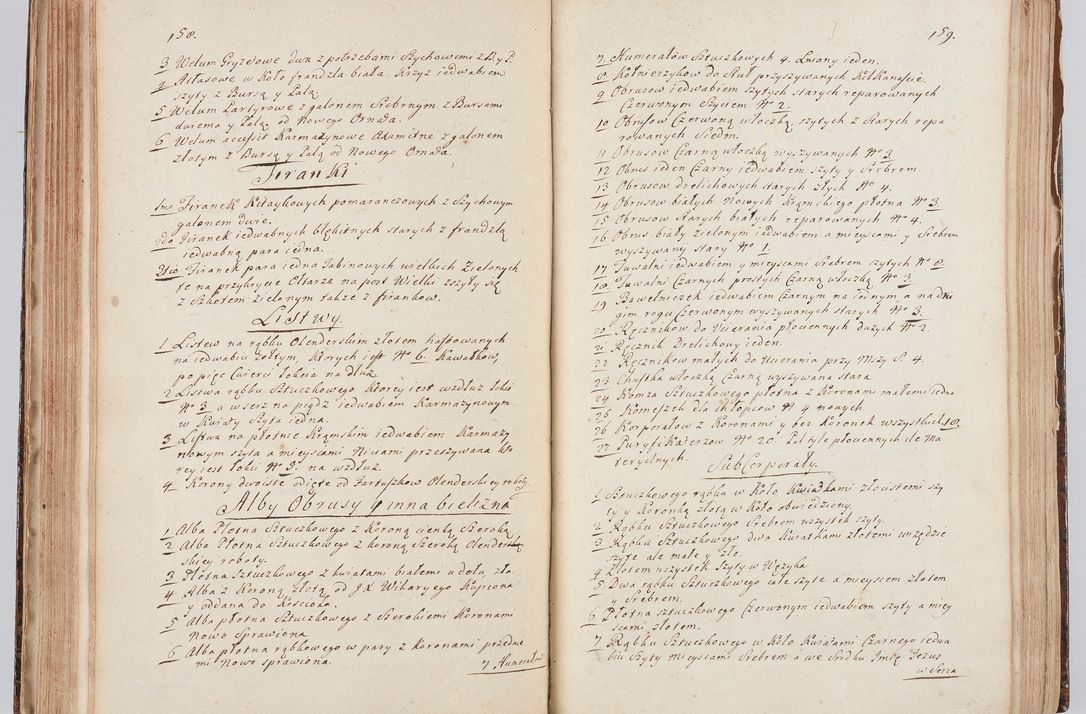 158.
3 Welum Gryzetowe dwa z potrzebami Szychowemi z B. y P.
4 Atłasowe w koło frandzla biała. Krzyż iedwabiem
szyty z Bursą y Palą
5 Welum Partyrowe z galonem Srebrnym z Bursami
dwiema y Palą, od Nowego Ornata.
6 Welum accessit Karmazynowe Axamitne z galonem
złotym z Bursą y Palą od Nowego Ornata.
Firanki
1mo Firanek Kitaykowych pomaranczowych z Szychowym
galonem dwie.
2do Firanek iedwabnych błękitnych starych z frandzlą
iedwabną para iedna.
3tio Firanek para iedna Tabinowych wielkich Zielonych
te na przykrycie Ołtarza na post Wielki zszyły się
z Szkotem Zielonym także z firankow.
Listwy.
1 Listew na rąbku Olenderskim złotem haftowanych
na iedwabiu żołtym, ktorych iest No 6. Kawałkow,
po pięć ćwierci łokcia na dłuż
2 Listwa rąbku Sztuczkowego ktorey iest wzdłuż łokci
No 3 a wszerz na piędź iedwabiem Karmazynowym
w Kwiaty Szyta iedna.
3 Listwa na płotnie Krąmskim iedwabiem Karmazy
nowym szyta a mieyscami Niciami przeszywana kto
rey iest łokci No 3. na wzdłuż.
4 Korony dwoiste odięte od Fartuszkow Olenderskiey roboty.
Alby Obrusy y inna bielizna
1 Alba Płotna Sztuczkowego z Koroną cienką Szeroką
2 Alba Płotna Sztuczkowego z koroną Szeroką Olender
skiey roboty.
3 Płotna Sztuczkowego z kwiatami białemi u dołu zła
4 Alba z Koroną złotą od JX Wikarego Kupiona
y oddana do Kościoła.
5 Alba płotna Sztuczkowego z Szerokiemi Koronami
Nowo Sprawiona
6 Alba płotna rąbkowego w pasy z koronami przedne
mi Nowo sprawiona.
7 Humerałow
159.
7. Humerałow Sztuczkowych 4. Lniany ieden.
8 Kołnierzykow do Stuł przyszywanych Kilkanaście.
9 Obrusow iedwabiem szytych starych reparowanych
Czerwonym Szyciem No 2.
10 Obrusow Czerwoną włoczką, szytych z starych repa
rowanych Siedm.
11 Obrusow Czarną włoczką wyszywanych No 3
12 Obrus ieden Czarny iedwabiem szyty y Srebrem.
13 Obrusow drelichowych starych złych No 4.
14 Obrusow białych Nowych Krąmskiego płotna No 3.
15 Obrusow Starych białych reparowanych No 4.
16 Obrus biały zielonym iedwabiem a mieyscami y Srebrem
wyszywany stary No 1.
17 Tuwalni iedwabiem y mieyscami Srebrem szytych No 8.
18 Tuwalni Czarnych prostych Czarną włoczką No 3.
19 Bawełniczek iedwabiem Czarnym na iednym a na dru
gim rogu Czerwonym wyszywanych starych No 3.
20 Ręcznikow do Ucierania płociennych dużych No 2.
21 Ręcznik Drelichowy ieden.
22 Ręcznikow małych do Ucierania przy Mszy S. 4.
23 Chustka włoczką Czarną wyszywana stara
24 Komza Sztuczkowego płotna z Koronami małemi iedna
25 Komeszek dla chłopcow No 4 nowych.
26 Korporałow z Koronami y bez Koronek wszystkich 18.
27 Puryfikaterzow No 20 Pal tyle płociennych ile Ma
teryalnych.
SubCorporały.
1 Sztuczkowego rąbku w Koło Kwiatkami złocistemi szy
ty y Koronką złotą w koło obwiedziony.
2 Rąbku Sztuczkowego Srebrem wszystek szyty.
3 Rąbku Sztuczkowego dwa Kwiatkami złotemi wszędzie
szyte ale małe y złe.
4 Złotem wszystek Szyty w Wężyka
5 Dwa rąbku Sztuczkowego całe szyte a mieyscem złotem
y Srebrem.
6 Płotna sztuczkowego Czerwonym iedwabiem szyty a miey
scami złotem.
7 Rąbku Sztuczkowego w Koło Kwiatami Czarnego iedwa
biu Szyty mieyscami Srebrem a we Srodku Imię Jezus
w Sercu